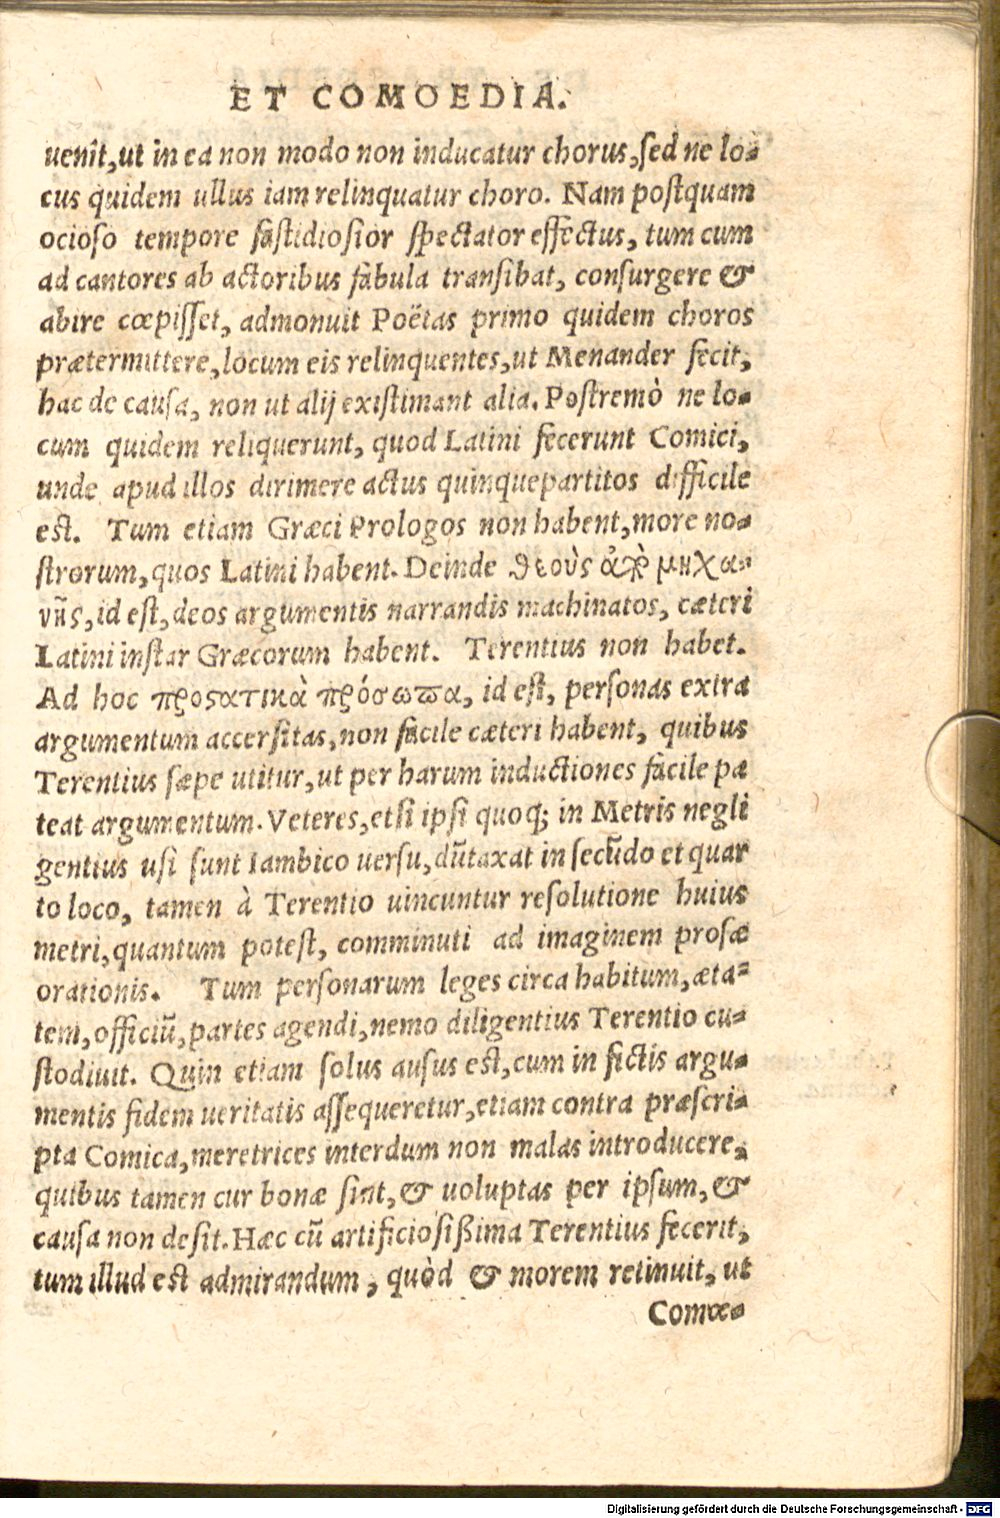 ET COMOEDIA.
uenît, ut in ea non modo non inducatur chorus, sed ne lo-
cus quidem ullus iam relinquatur choro. Nam postquam
ocioso tempore fastidiosior spectator effectus, tum cum
ad cantores ab actoribus fabula transibat, consurgere &
abire cœpisset, admonuit Poëtas primo quidem choros
prætermittere, locum eis relinquentes, ut Menander fecit,
hac de causa, non ut alij existimant alia. Postremò ne lo-
cum quidem reliquerunt, quod Latini fecerunt Comici,
unde apud illos dirimere actus quinquepartitos difficile
est. Tum etiam Græci Prologos non habent, more no-
strorum, quos Latini habent. Deinde θεοὺς ἀπὸ μηχα-
νῆς, id est, deos argumentis narrandis machinatos, cæteri
Latini instar Græcorum habent. Terentius non habet.
Ad hoc προσατικὰ πρόσωπα, id est, personas extra
argumentum accersitas, non facile cæteri habent, quibus
Terentius sæpe utitur, ut per harum inductiones facile pa
teat argumentum. Veteres, etsi ipsi quoq; in Metris negli
gentius usi sunt Iambico uersu, dũtaxat in secũdo et quar
to loco, tamen à Terentio uincuntur resolutione huius
metri, quantum potest, comminuti ad imaginem prosæ
orationis. Tum personarum leges circa habitum, æta-
tem, officiũ, partes agendi, nemo diligentius Terentio cu-
stodiuit. Quin etiam solus ausus est, cum in fictis argu-
mentis fidem ueritatis assequeretur, etiam contra præscri-
pta Comica, meretrices interdum non malas introducere,
quibus tamen cur bonæ sint, & uoluptas per ipsum, &
causa non desit. Hæc cũ artificiosißima Terentius fecerit,
tum illud est admirandum, quòd & morem retinuit, ut
Comœ-
Digitalisierung gefördert durch die Deutsche Forschungsgemeinschaft - DFG